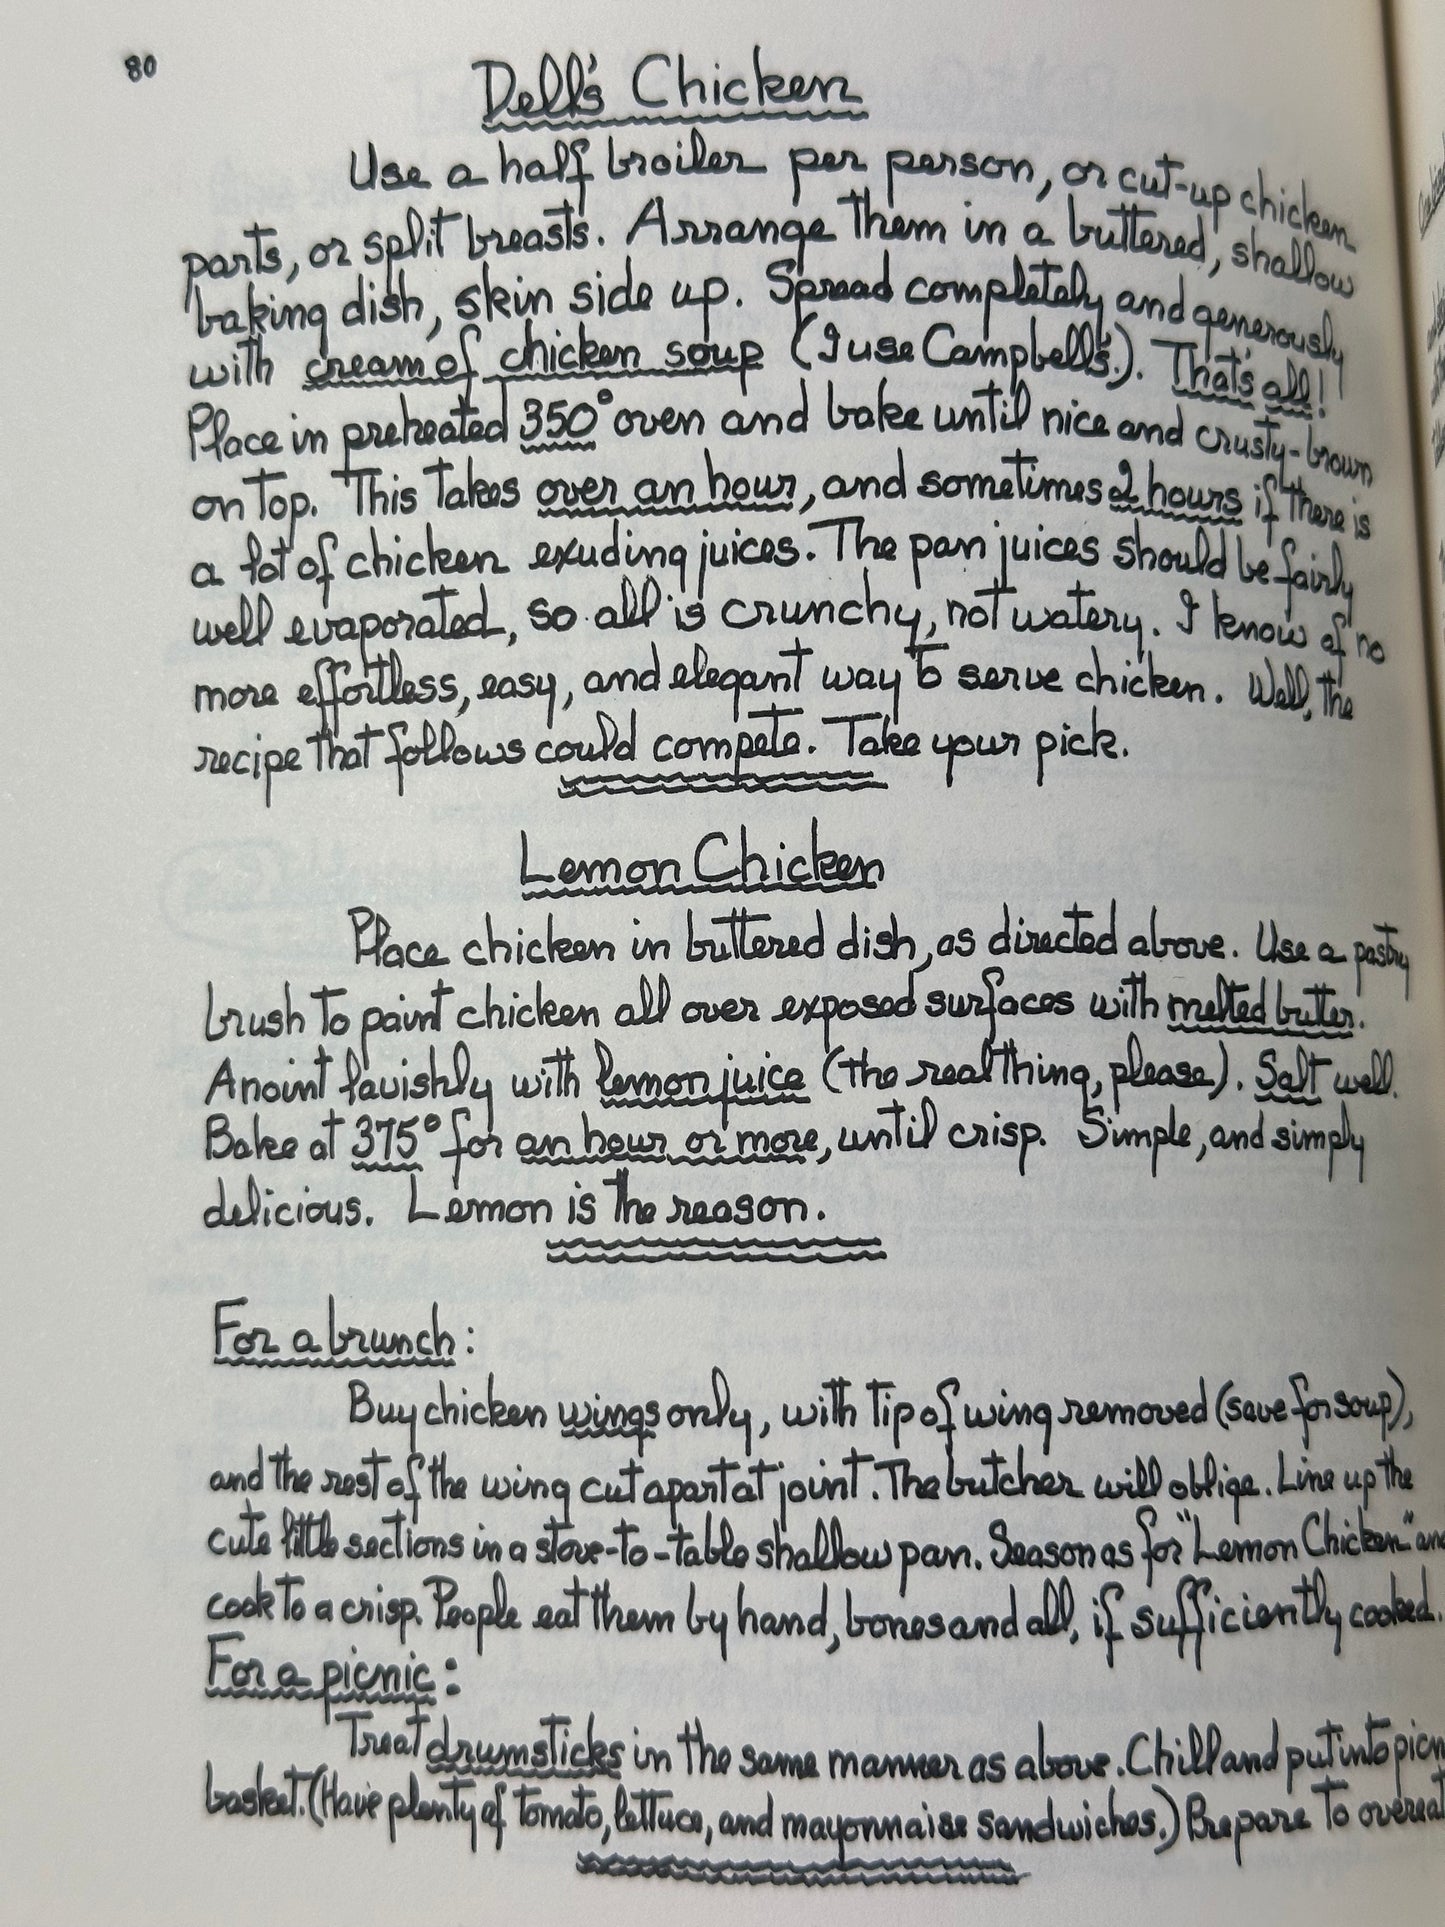 80
Dell's Chicken
Use a half broiler per person, or cut-up chicken
parts, or split breasts. Arrange them in a buttered, shallow
baking dish, skin side up. Spread completely and generously
with cream of chicken soup (I use Campbell's.). That's all!
Place in preheated 350° oven and bake until nice and crusty-brown
on top. This takes over an hour, and sometimes 2 hours if there is
a lot of chicken exuding juices. The pan juices should be fairly
well evaporated, so all is crunchy, not watery. I know of no
more effortless, easy, and elegant way to serve chicken. Well, the
recipe that follows could compete. Take your pick.
Lemon Chicken
Place chicken in buttered dish, as directed above. Use a pastry
brush to paint chicken all over exposed surfaces with melted butter.
Anoint lavishly with lemon juice (the real thing, please). Salt well.
Bake at 375° for an hour or more, until crisp. Simple, and simply
delicious. Lemon is the reason.
For a brunch:
Buy chicken wings only, with tip of wing removed (save for soup),
and the rest of the wing cut apart at joint. The butcher will oblige. Line up the
cute little sections in a stove-to-table shallow pan. Season as for "Lemon Chicken" and
cook to a crisp. People eat them by hand, bones and all, if sufficiently cooked.
For a picnic:
Treat drumsticks in the same manner as above. Chill and put into picn
basket. (Have plenty of tomato, lettuce, and mayonnaise sandwiches.) Prepare to overeat